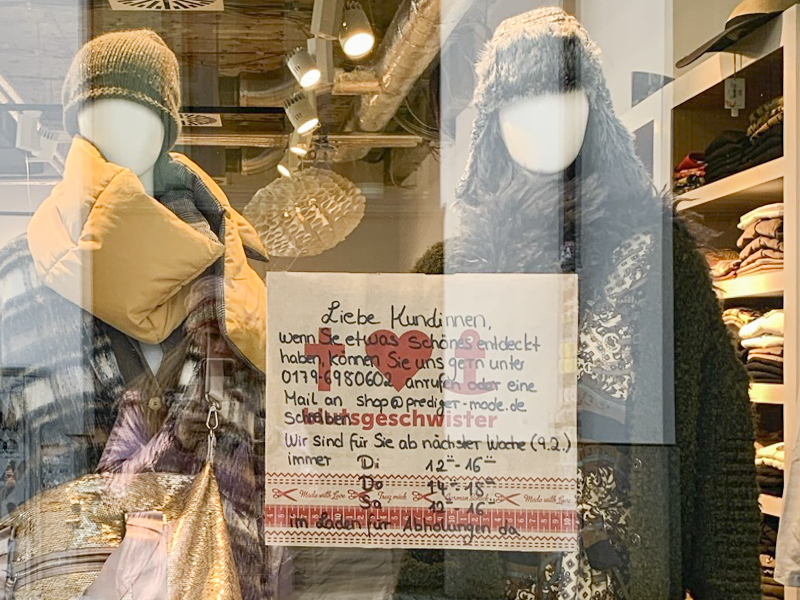 Liebe Kundinnen,
wenn Sie etwas schönes entdeckt
haben, können Sie uns gern unter
0179-6980602 anrufen oder eine
Mail an shop@prediger-mode.de
schreiben.
herzensgeschwister
Wir sind für Sie ab nächster Woche (9.2.)
immer Di 12°°-16°°
Do 14°°-18°°
Made with Love Trag mich German Made with Love
Sa 12-16°°
im Laden für Abholungen da